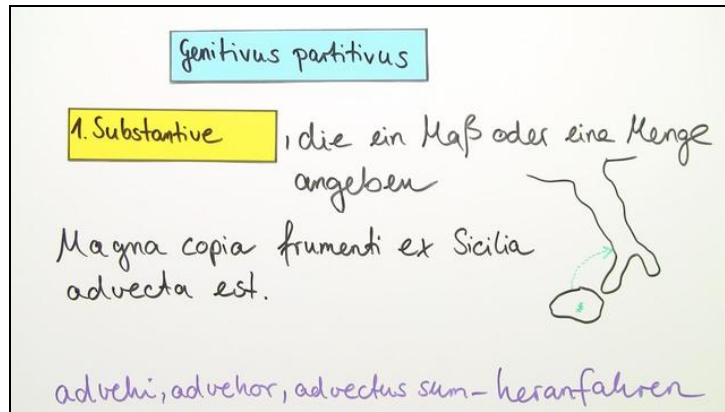 Genitivus partitivus
1. Substantive , die ein Maß oder eine Menge
angeben
Magna copia frumenti ex Sicilia
advecta est.
advehi, advehor, advectus sum - heranfahren